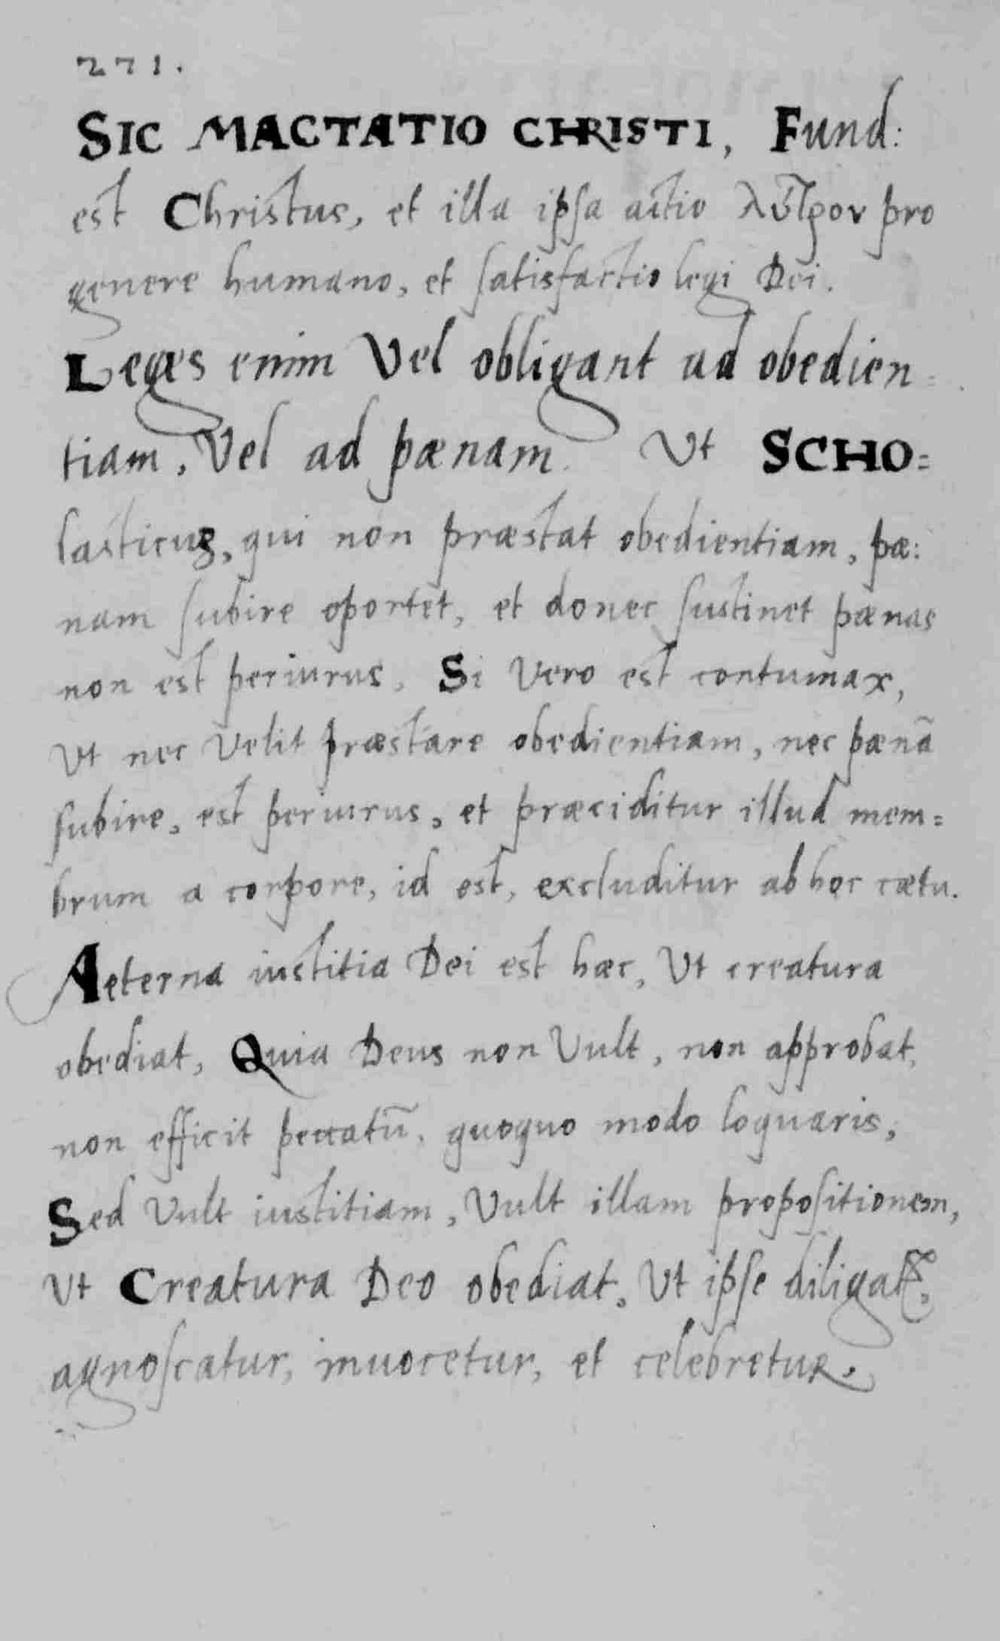 271.
SIC MACTATIO CHRISTI, Fund:
est Christus, et illa ipsa actio λύτρον pro
genere humano, et satisfactio legi Dei.
Leges enim Vel obligant ad obedien=
tiam, Vel ad pænam. Ut SCHO=
lasticus, qui non præstat obedientiam, pæ:
nam subire oportet, et donec sustinet pænas
non est periurus, Si Vero est contumax,
Ut nec Velit præstare obedientiam, nec pænā
subire, est periurus, et præciditur illud mem=
brum a corpore, id est, excluditur ab hoc cætu.
Aeterna iustitia Dei est hæc, Ut creatura
obediat, Quia Deus non Vult, non approbat,
non efficit peccatū, quoquo modo loquaris,
Sed Vult iustitiam, Vult illam propositionem,
Ut Creatura Deo obediat, Ut ipse diligat᷑,
agnoscatur, inuocetur, et celebretur.